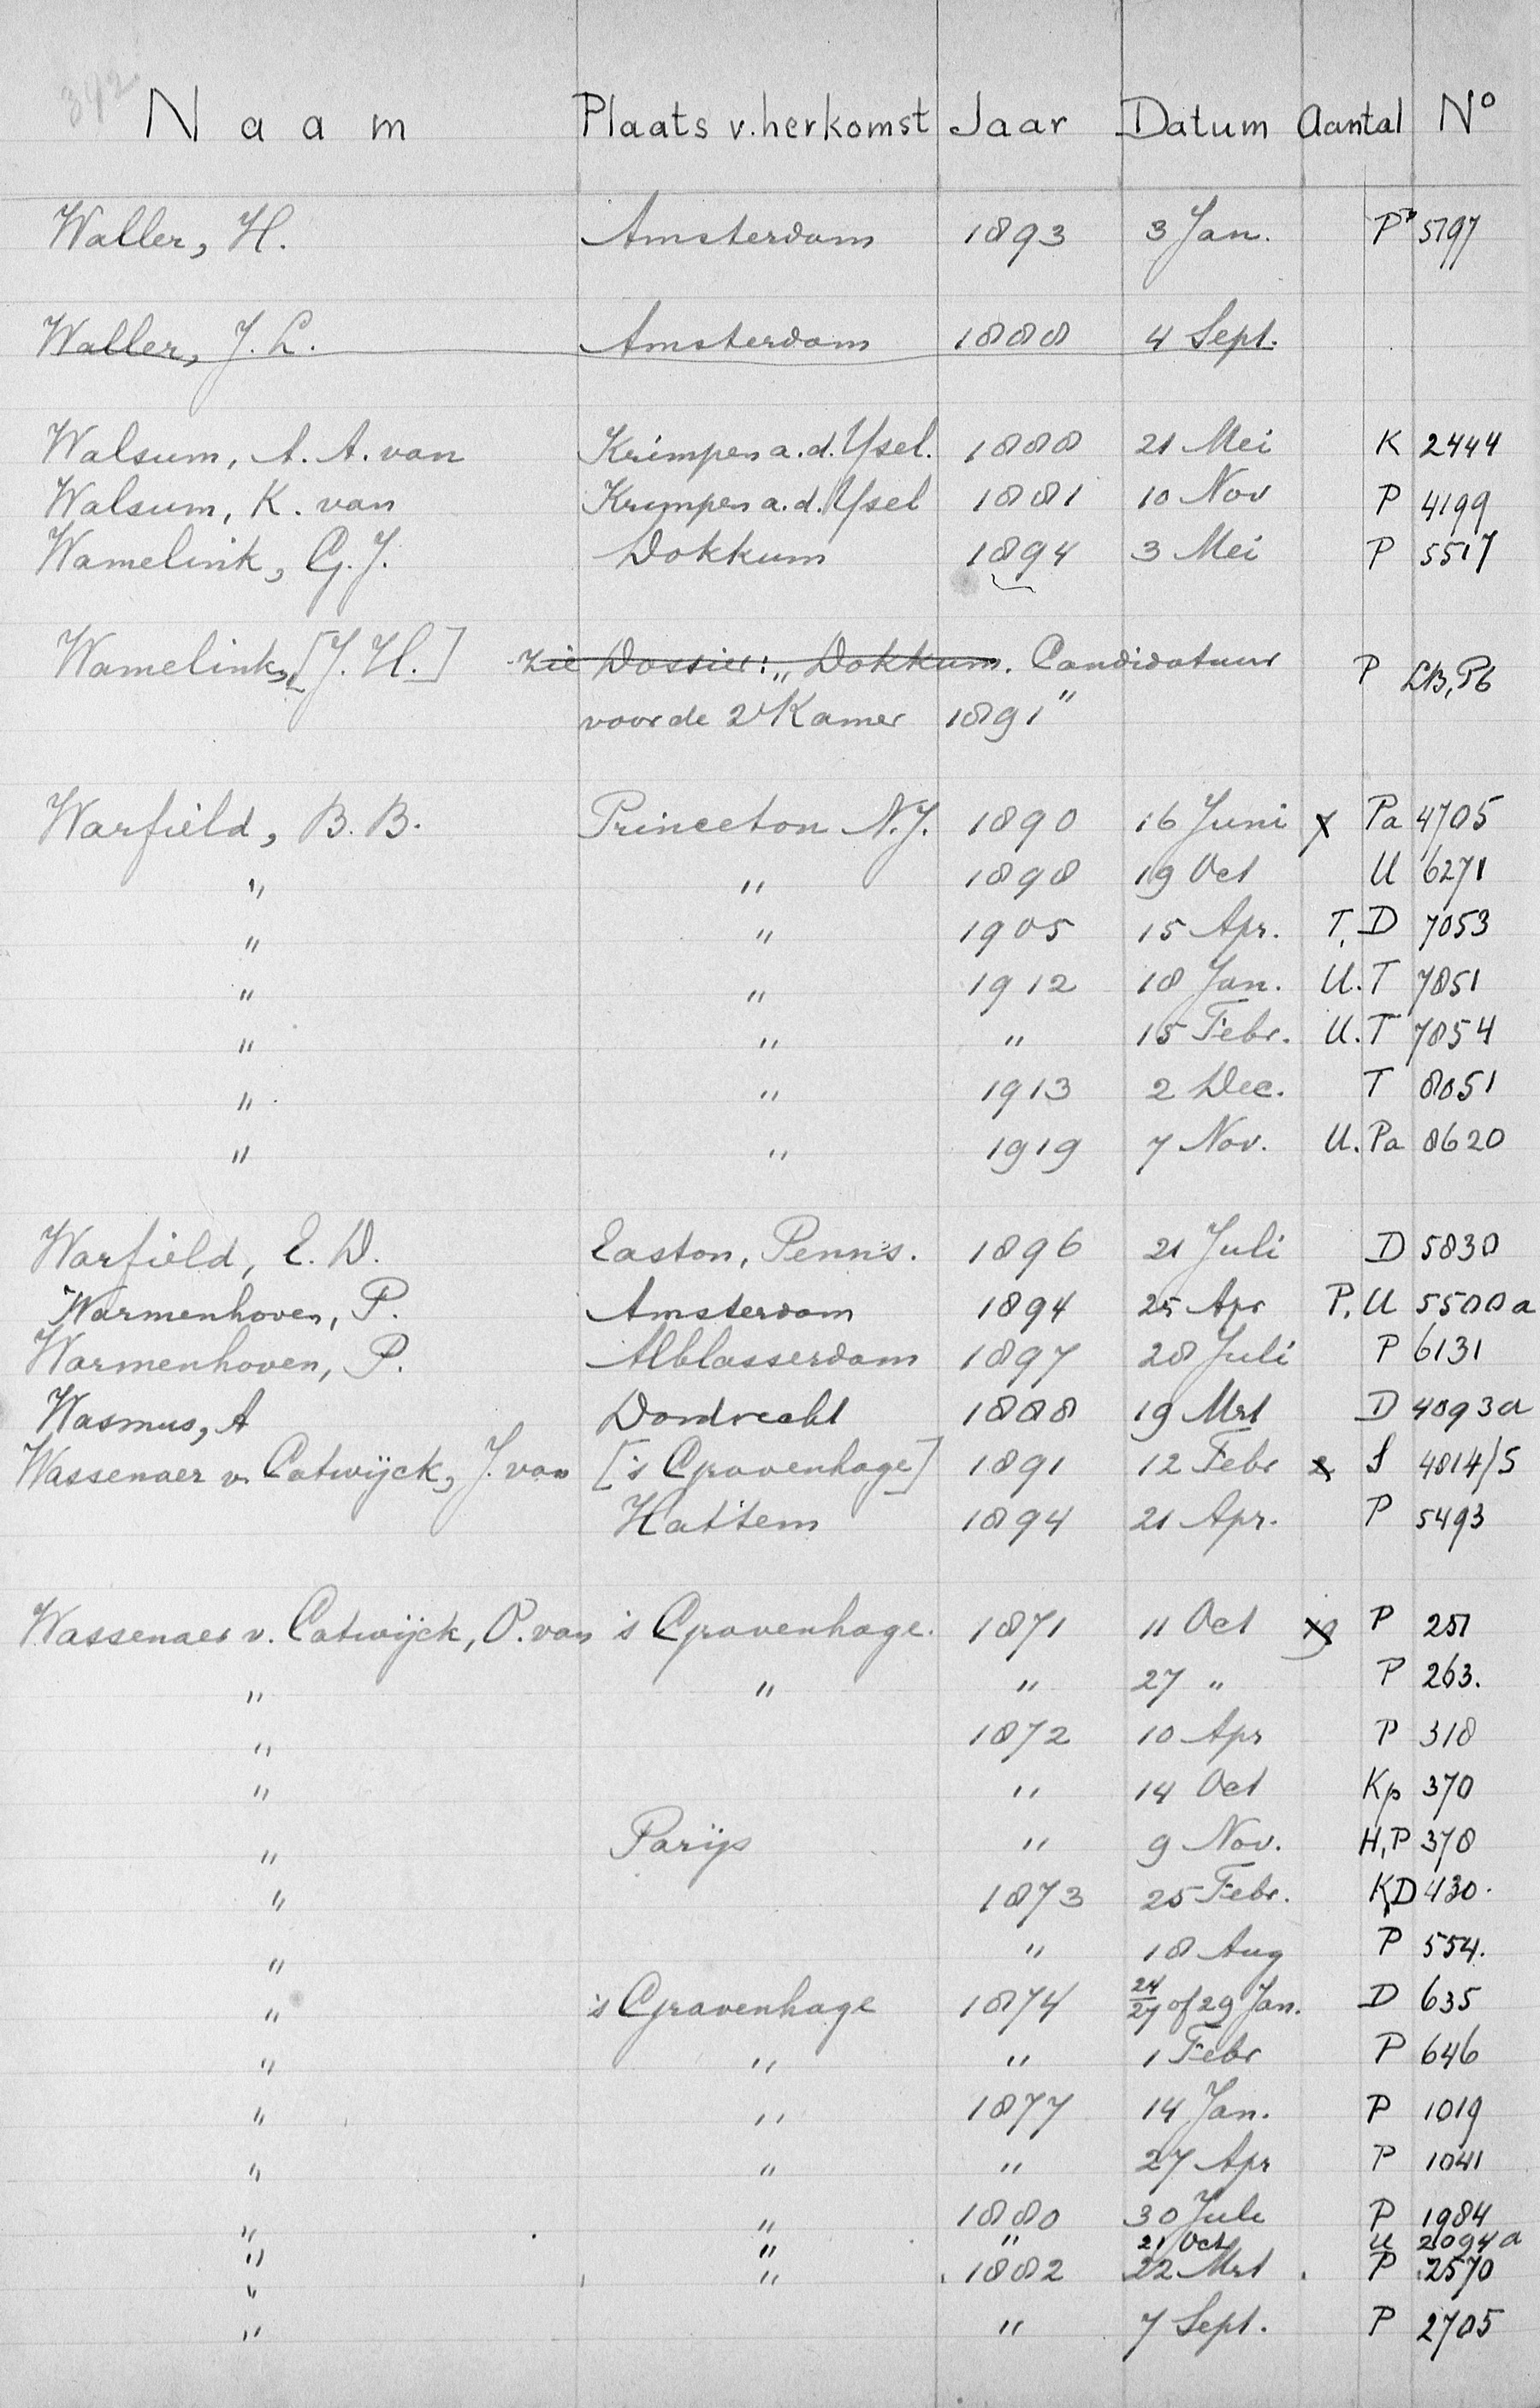 342
Naam Plaats v. herkomst Jaar Datum Aantal No
Waller, H. Amsterdam 1893 3 Jan. P 5797
Waller, J. L. Amsterdam 1888 4 Sept.
Walsum, A. A. van Krimpen a.d. Ysel. 1888 21 Mei K 2444
Walsum, K. van Krimpen a.d. Ysel 1881 10 Nov P 4199
Wamelink, G. J. Dokkum 1894 3 Mei P 5517
Wamelink, [J. H.] zie Dossier: „Dokkum. Candidatuur P LB, P6
voor de 2e Kamer 1891"
Warfield, B. B. Princeton N.J. 1890 16 Juni Pa 4705
" " 1898 19 Oct U 6271
" " 1905 15 Apr. T. D 7053
" " 1912 18 Jan. U. T 7851
" " " 15 Febr. U. T 7854
" " 1913 2 Dec. T 8051
" " 1919 7 Nov. U. Pa 8620
Warfield, E. D. Easton, Penns. 1896 21 Juli D 5830
Warmenhoven, P. Amsterdam 1894 25 Apr P. U 5500a
Warmenhoven, P. Alblasserdam 1897 28 Juli P 6131
Wasmus, A Dordrecht 1888 19 Mrt D 4093a
Wassenaer v. Catwijck, J. van ['s Gravenhage] 1891 12 Febr 2 S 4814/5
Hattem 1894 21 Apr. P 5493
Wassenaer v. Catwijck, O. van 's Gravenhage. 1871 11 Oct P 251
" " " 27 " P 263.
" 1872 10 Apr P 318
" " 14 Oct Kp 370
" Parijs " 9 Nov. H, P 378
" 1873 25 Febr. K, D 430.
" " 18 Aug P 554.
" 's Gravenhage 1874 24/27 of 29 Jan. D 635
" " " 1 Febr P 646
" " 1877 14 Jan. P 1019
" " " 27 Apr P 1041
" " 1880 30 Juli P 1984
" " " 21 Oct U 2094a
" " 1882 22 Mrt P 2570
" " 7 Sept. P 2705